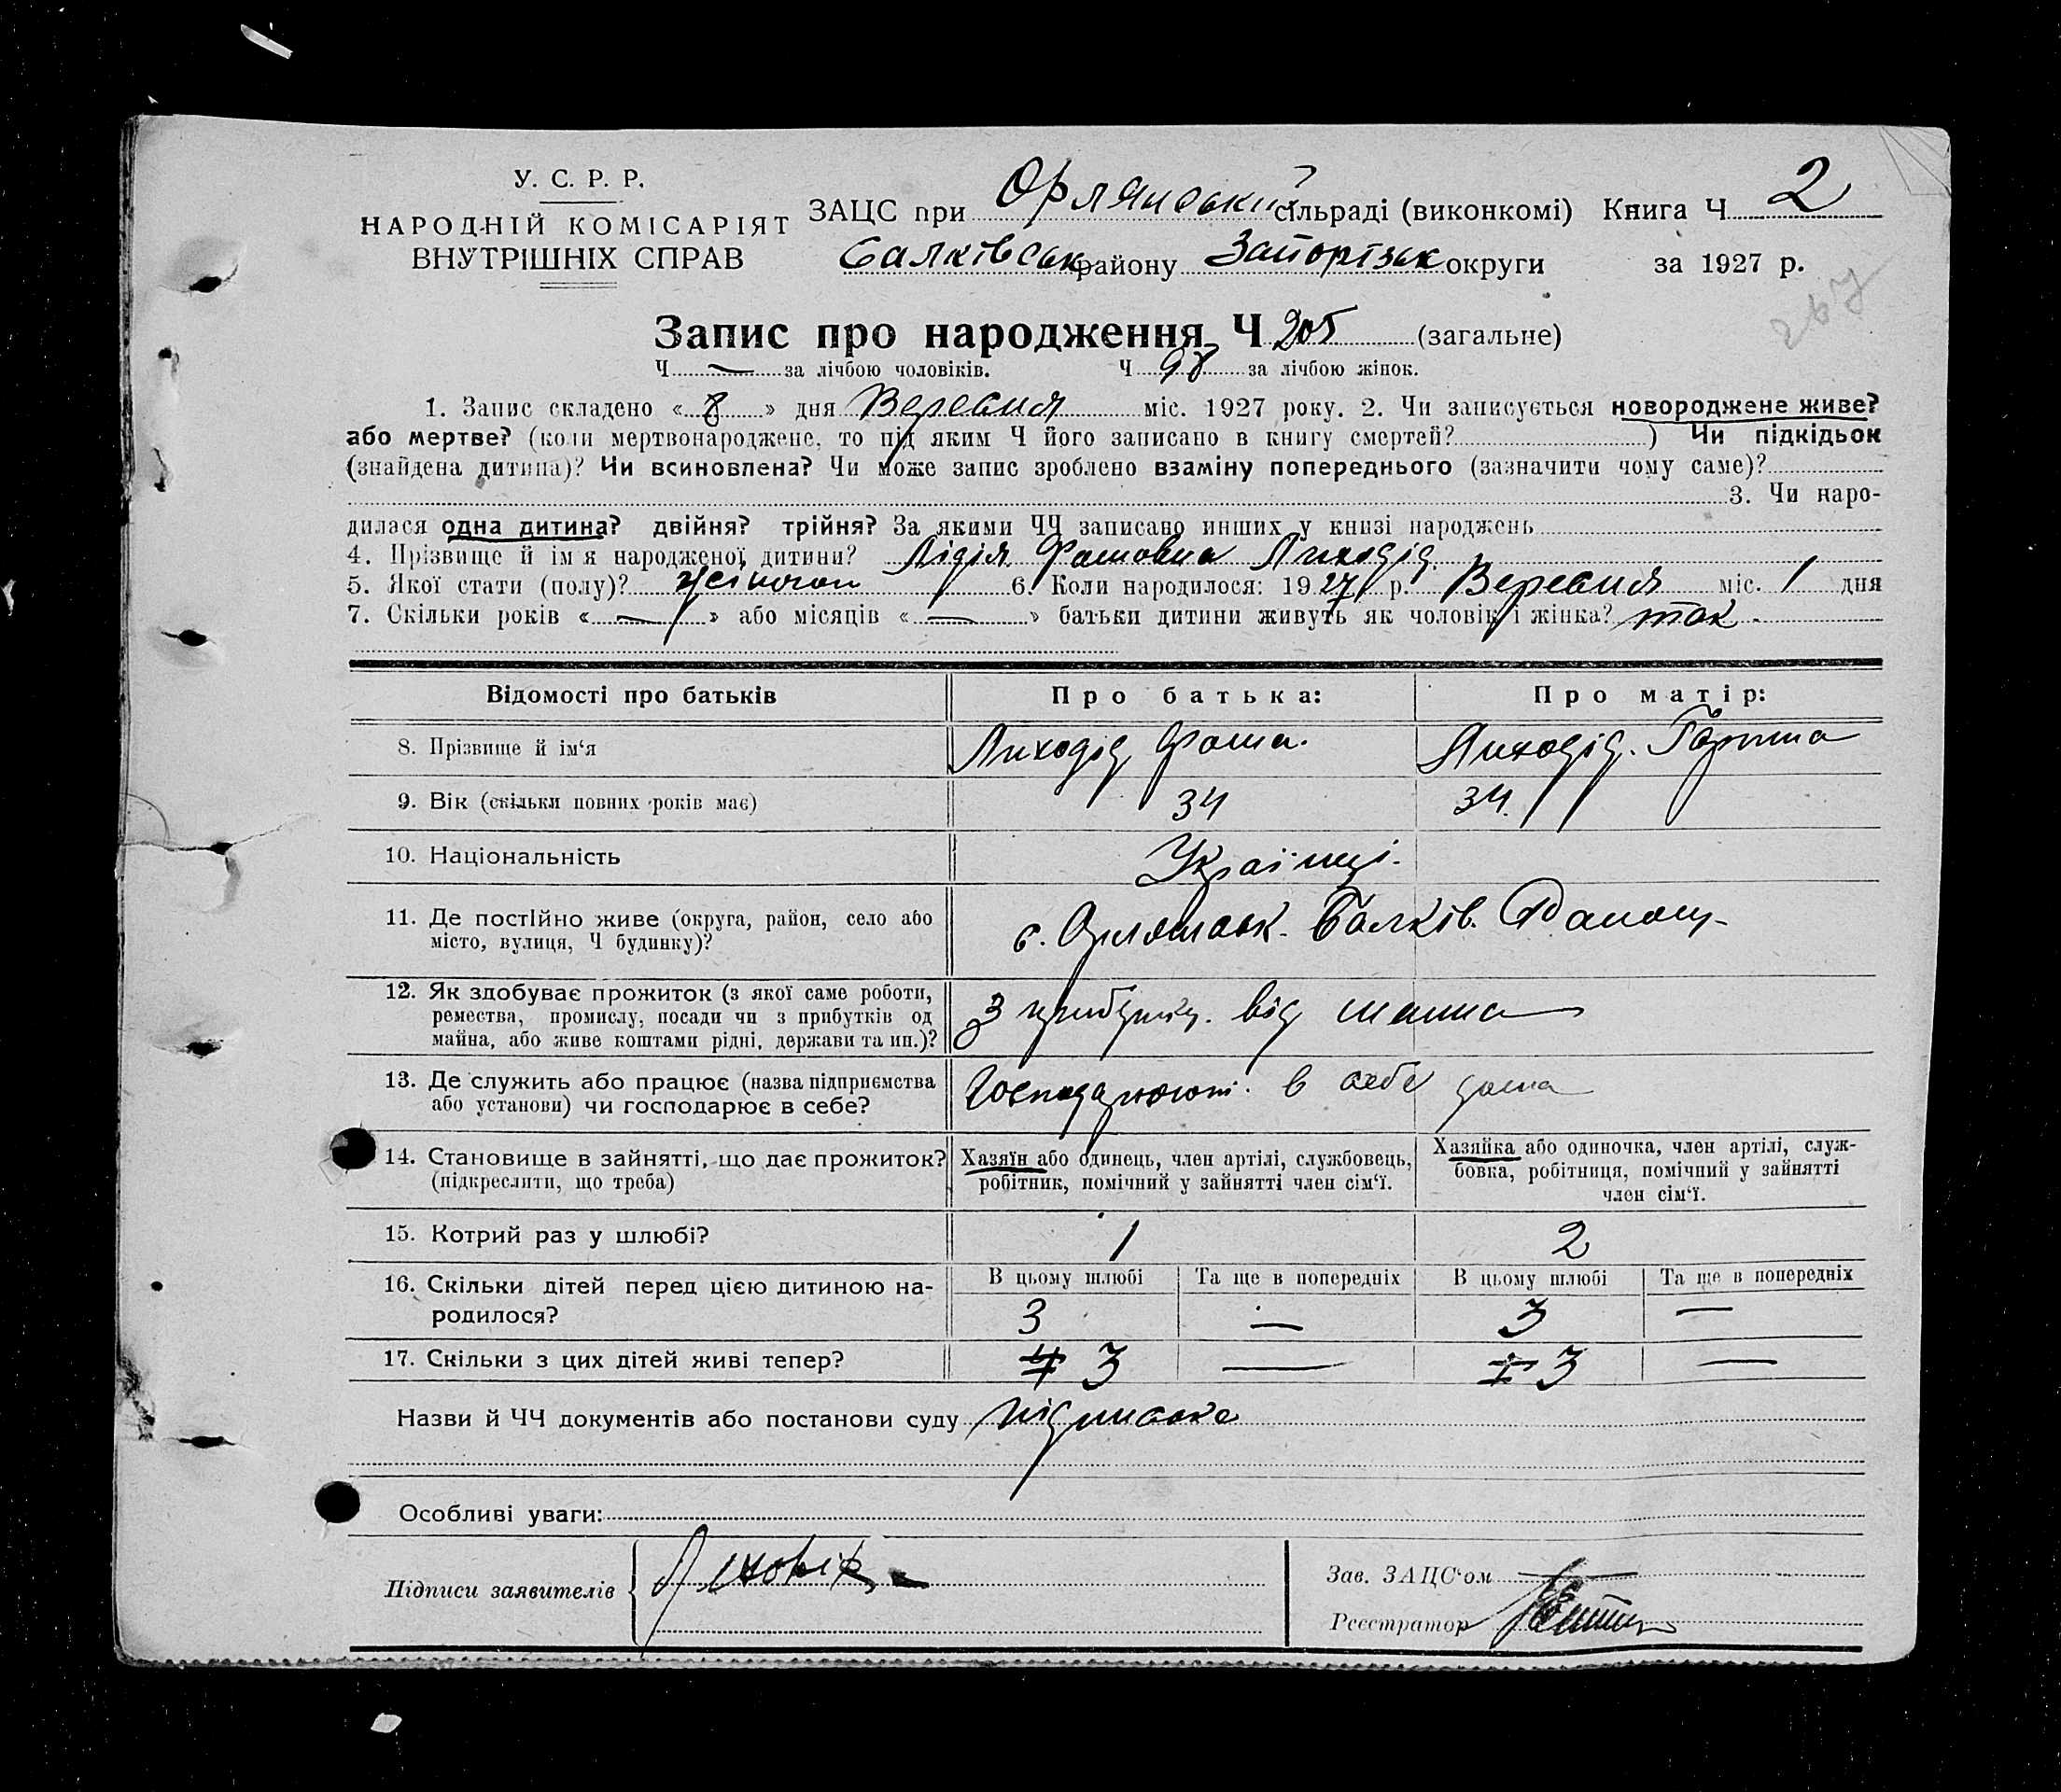 У. С. Р. Р.
НАРОДНІЙ КОМІСАРІЯТ
ВНУТРІШНІХ СПРАВ
ЗАЦС при Орлянській сільраді (виконкомі) Книга Ч 2
Балківськ району Запорізьк округи за 1927 р.
267
Запис про народження Ч 205 (загальне)
Ч — за лічбою чоловіків. Ч 98 за лічбою жінок.
1. Запис складено « 8 » дня Вересня міс. 1927 року. 2. Чи записується новороджене живе?
або мертве? (коли мертвонароджене, то під яким Ч його записано в книгу смертей? ) Чи підкідьок
(знайдена дитина)? Чи всиновлена? Чи може запис зроблено взаміну попереднього (зазначити чому саме)?
3. Чи наро-
дилася одна дитина? двійня? трійня? За якими ЧЧ записано инших у книзі народжень
4. Прізвище й ім'я народженої дитини? Лідія Фомовна Лиходід.
5. Якої стати (полу)? жіночої 6. Коли народилося: 1927 р. Вересня міс. 1 дня
7. Скільки років « — » або місяців « — » батьки дитини живуть як чоловік і жінка? так.
Відомості про батьків Про батька: Про матір:
8. Прізвище й ім'я Лиходід Фома. Лиходід.
9. Вік (скільки повних років має) 34 34.
10. Національність Українці.
11. Де постійно живе (округа, район, село або
місто, вулиця, Ч будинку)? с. Орлянськ. Балків.
12. Як здобуває прожиток (з якої саме роботи,
ремества, промислу, посади чи з прибутків од
майна, або живе коштами рідні, держави та ин.)? З прибутків. від майна
13. Де служить або працює (назва підприємства
або установи) чи господарює в себе? Господарюють. в себе дома
14. Становище в зайнятті, що дає прожиток?
(підкреслити, що треба)
Хазяїн або одинець, член артілі, службовець,
робітник, помічний у зайнятті член сім'ї.
Хазяйка або одиночка, член артілі, служ-
бовка, робітниця, помічний у зайнятті
член сім'ї.
15. Котрий раз у шлюбі? 1 2
16. Скільки дітей перед цією дитиною на-
родилося?
В цьому шлюбі Та ще в попередніх В цьому шлюбі Та ще в попередніх
3 — 3 —
17. Скільки з цих дітей живі тепер? 4 3 — 3 —
Назви й ЧЧ документів або постанови суду
Особливі уваги:
Підписи заявителів
Зав. ЗАЦС'ом
Реєстратор